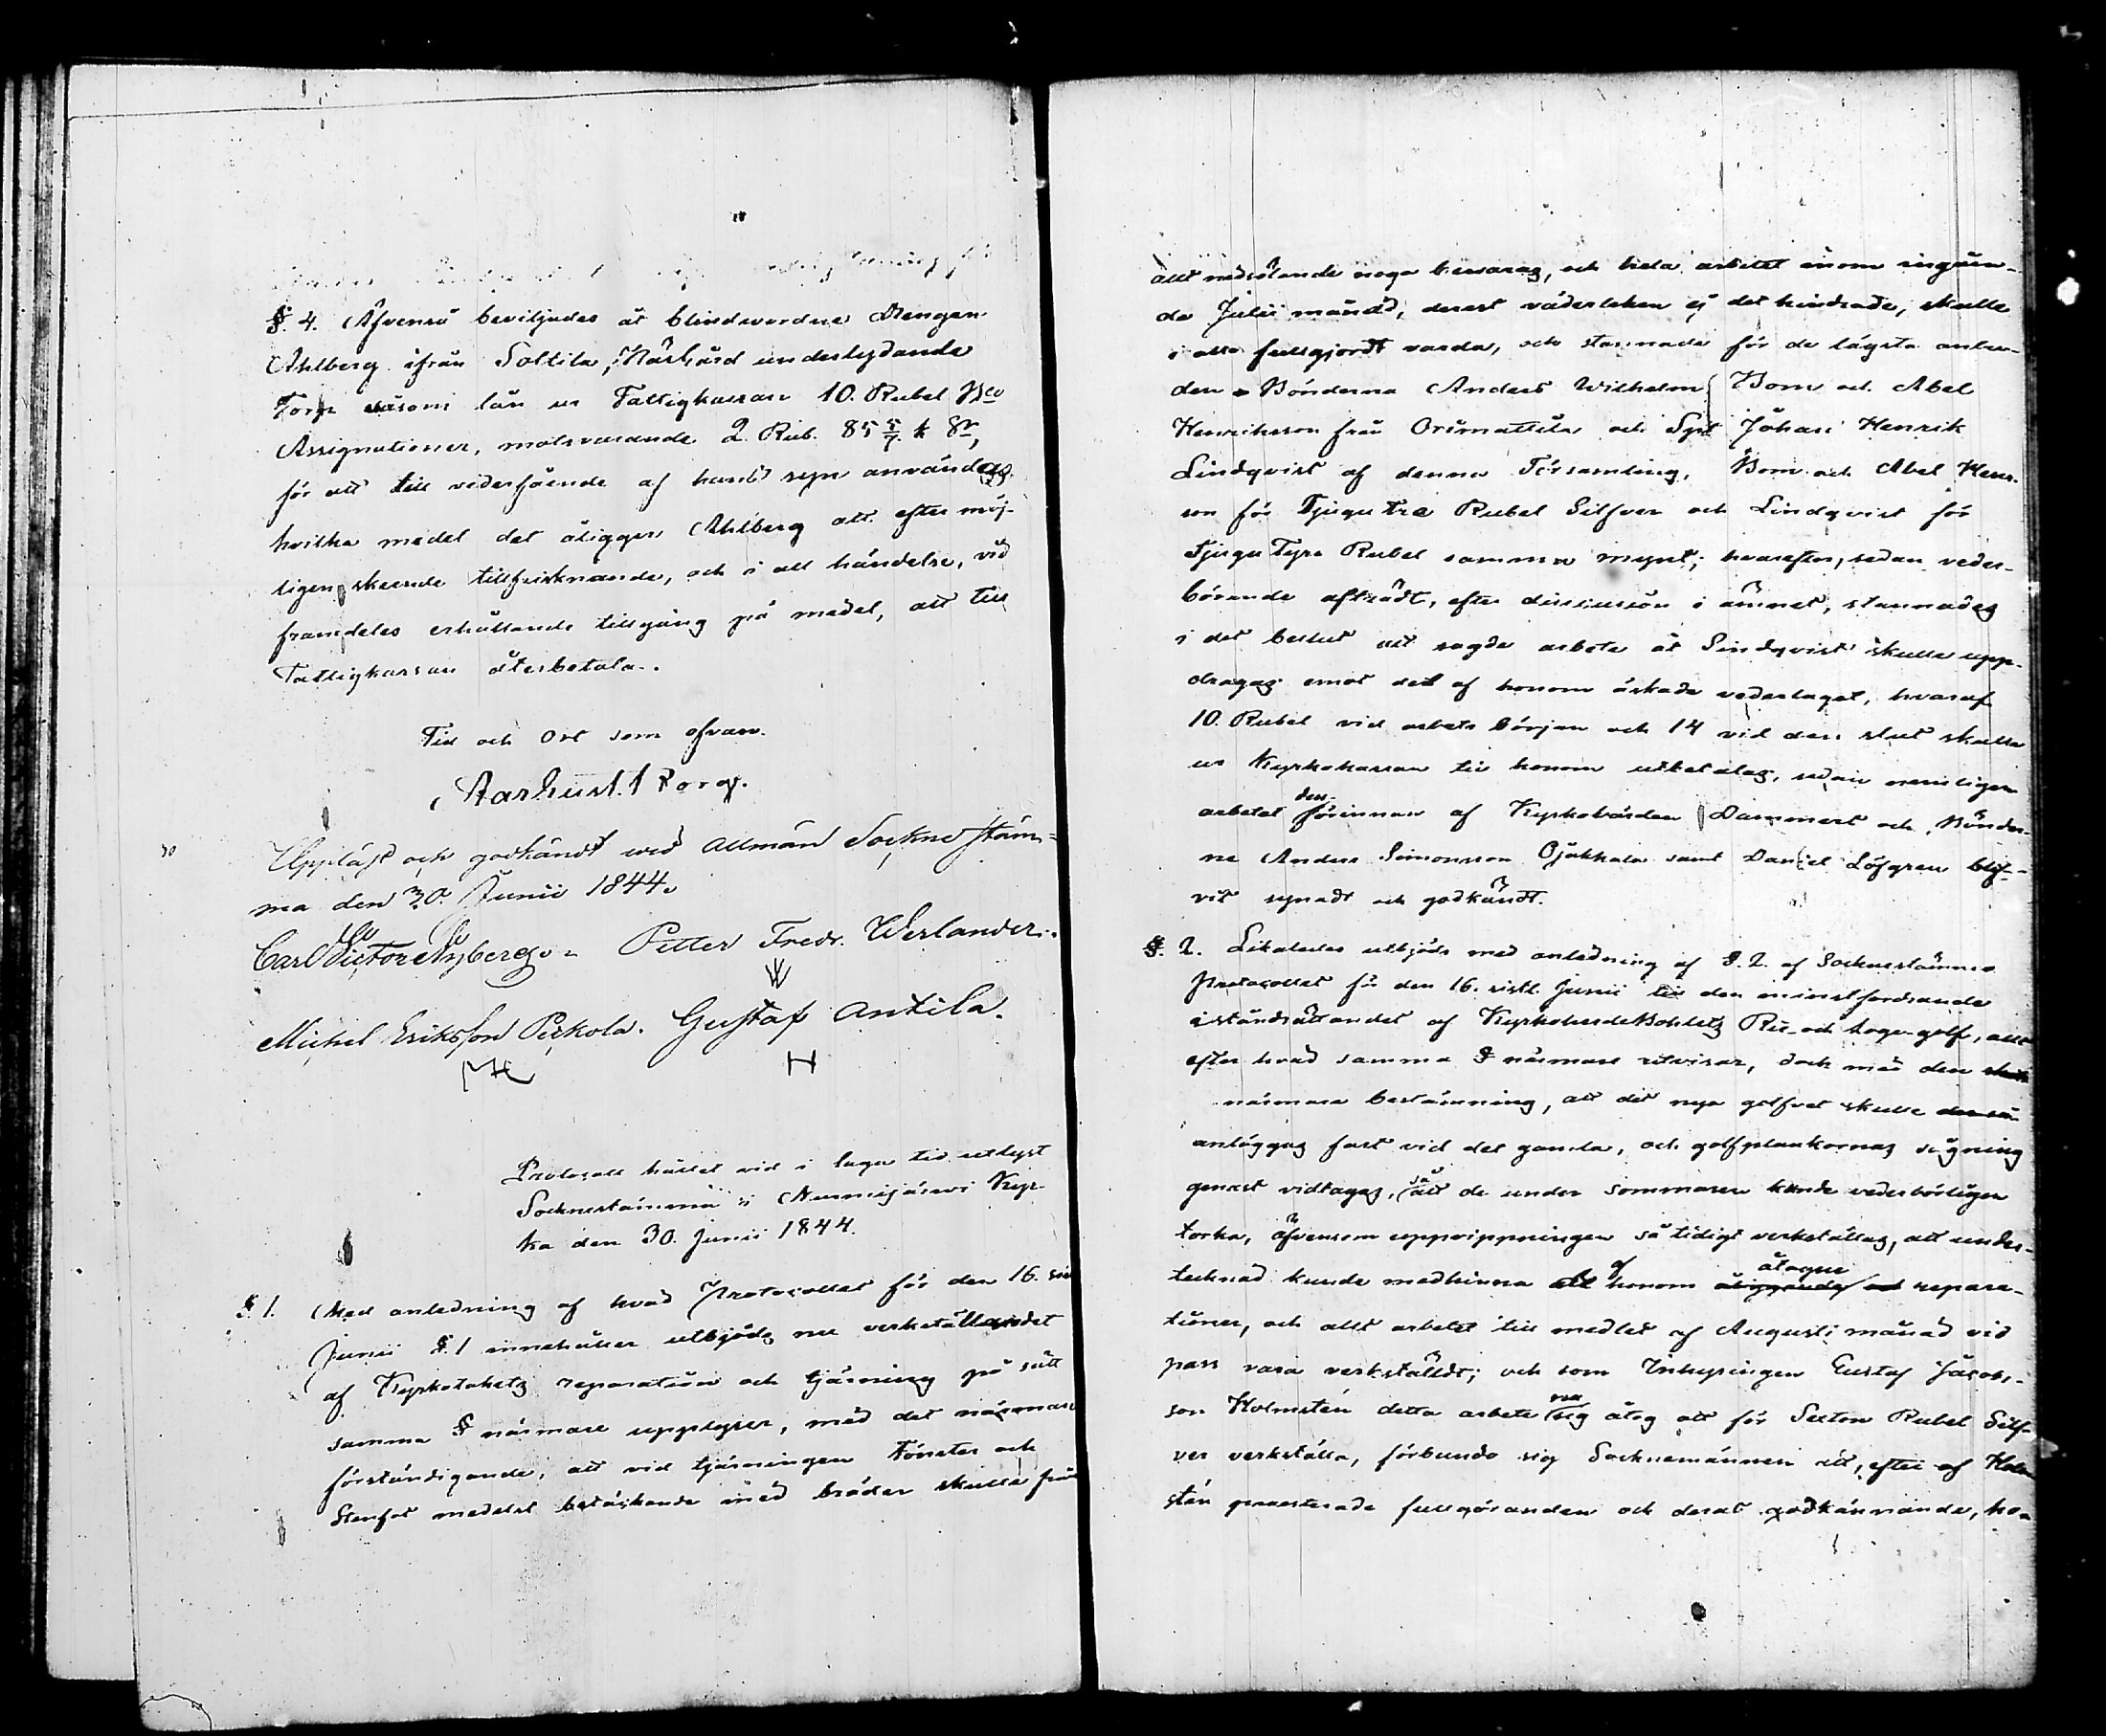 §. 4. Äfvenså beviljades åt blindvordne Drengen
Ahlberg ifrån Soltila, Mårbård underlydande
Torp såsom lån ur Fattigkassan 10. Rubel Bco
Assignationer, motsvarande 2. Rub. 85 5/7 k Sr,
för att till vederfående af hans syn användas,
hvilka medel det åligger Ahlberg att efter möj-
ligen skeende tillfrisknande, och i all händelse, vid
framdeles erhållande tillgång på medel, att till
Fattigkassan återbetala.
Tid och Ort som ofvan.
Uppläst och godkändt wed Allmän Sockne stäm-
ma den 30. Junii 1844.
Carl Victor Nyberg. Petter Fredr. Werlander.
Michel Eriksson Pirkola. Gustaf Antila.
Protocoll hållet vid i laga tid utlyst
Sockenstämma i Nurmijärwi Kyr-
ka den 30. Junii 1844.
§ 1. Med anledning af hvad Protocollet för den 16. sistl.
Junii §. 1 innehåller utbjöds nu verkställandet
af Kyrkotakets reparation och tjärning på sätt
samma § närmare upplyser, med det närmare
förständigande, att vid tjärningen Fönster och
Stenfot medelst betäckande med bräder skulle från
allt nedsölande noga bevaras, och hela arbetet inom ingåen-
de Julii månad, derest väderleken ej det hindrade, skulle
i allo fullgjordt varda, och stannade för de lägsta anbu-
den Bönderna Anders Wilhelm Bom och Abel
Henriksson från Orimattila och Johan Henrik
Lindqvist af denna Församling, Bom och Abel Henr.
son för Tjugu tre Rubel Silfver och Lindqvist för
Tjugu Fyra Rubel samma mynt; hvarefter, sedan veder-
börande afträdt, efter discussion i ämnet, stannades
i det beslut att sagde arbete åt Lindqvist skulle upp-
dragas emot det af honom äskade vederlaget, hvaraf
10. Rubel vid arbets början och 14 vid dess slut skulle
ur Kyrkokassan till honom utbetalas, sedan nemligen
arbetet dess-förinnan af Kyrkovärden Dammert och Bönder-
ne Anders Simonsson Ojakkala samt Daniel Löfgren blif-
vit synadt och godkändt.
§. 2. Likaledes utbjöds med anledning af §. 2. af Sockenstämmo
Protocollet för den 16. sistl. Junii till den minstfordrande
iståndsättandet af Kyrkoherde Bohlets Rie- och loge-golf, allt
efter hvad samma § närmare utvisar, dock med den
närmare bestämning, att det nya golfvet skulle
anläggas fast vid det gamla, och golfplankornas sågning
genast vidtagas, så att de under sommaren kunde vederbörligen
torka, äfvensom uppvippningen så tidigt verkställas, att under-
tecknad kunde medhinna af honom åtagne repara-
tioner, och allt arbetet till medlet af Augusti månad vid
pass vara verkställdt; och som Inhysingen Gustaf Jacobs-
son Holmstén detta arbete sig åtog att för Sexton Rubel Silf-
ver verkställa, förbundo sig Sockenmännen att, efter af Holm-
stén presterade fullgöranden och derat godkännande, ho-